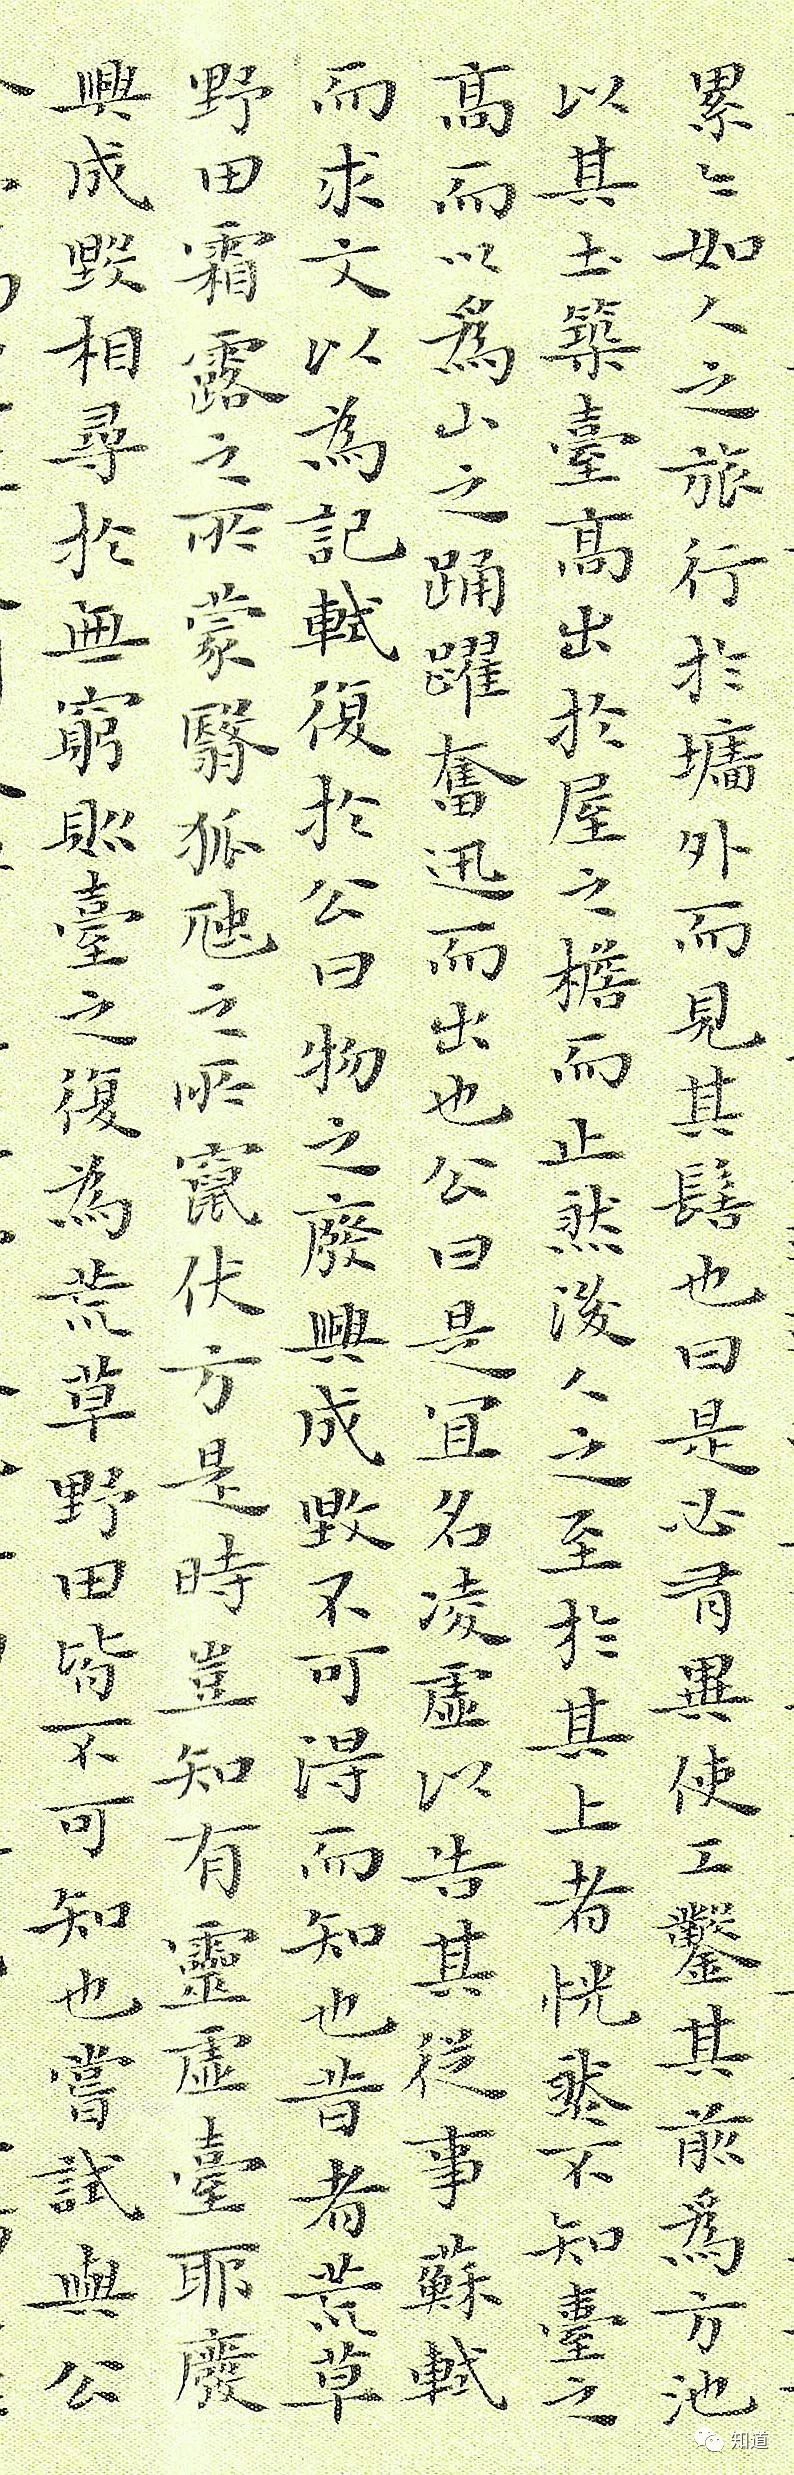 累〻如人之旅行於墻外而見其髻也曰是必有異使工鑿其前爲方池
以其土築臺高出於屋之檐而止然後人之至於其上者恍然不知臺之
高而以爲山之踊躍奮迅而出也公曰是宜名凌虛以告其從事蘇軾
而求文以為記軾復於公曰物之廢興成毀不可得而知也昔者荒草
野田霜露之所蒙翳狐虺之所竄伏方是時豈知有靈虛臺耶廢
興成毀相尋於無窮則臺之復為荒草野田皆不可知也嘗試與公
知道